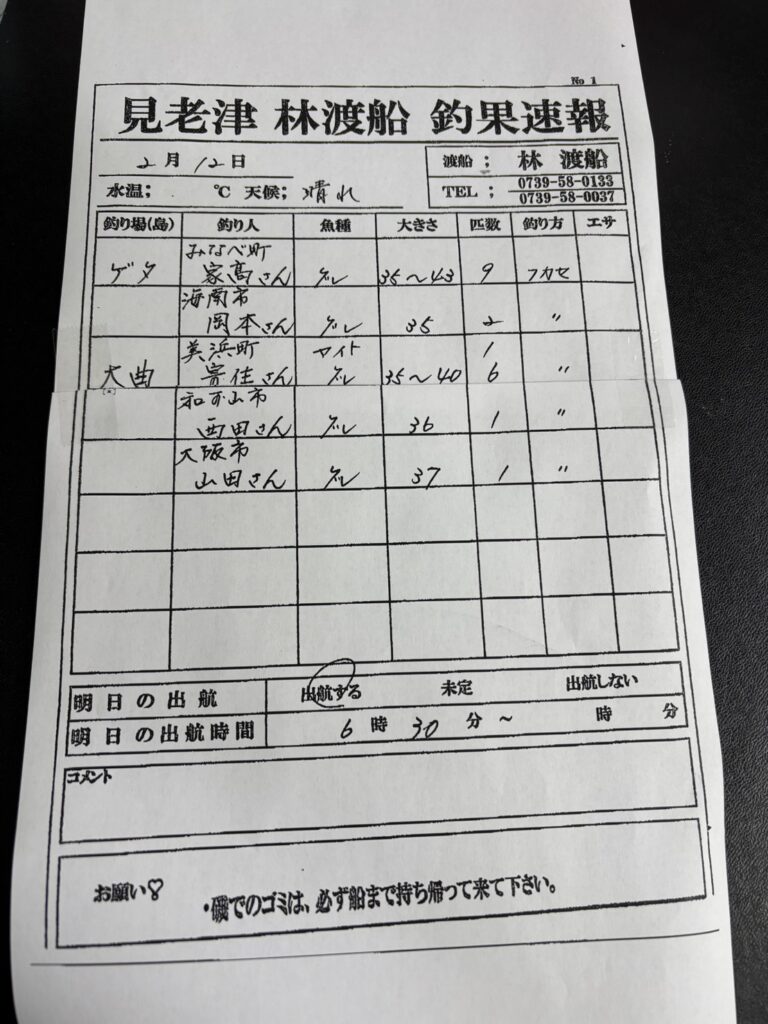 No 1
見老津 林渡船 釣果速報
2月12日
渡船; 林 渡船
水温; ℃ 天候; 晴れ
TEL; 0739-58-0133
0739-58-0037
釣り場(島) 釣り人 魚種 大きさ 匹数 釣り方 エサ
みなべ町
ゲタ 家高さん グレ 35〜43 9 フカセ
海南市
岡本さん グレ 35 2 〃
美浜町 マイト 1
大曲 寄住さん グレ 35〜40 6 〃
和か山市
西田さん グレ 36 1 〃
大阪市
山田さん グレ 37 1 〃
明日の出航 出航する 未定 出航しない
明日の出航時間 6時30分〜 時 分
コメント
お願い♡
・磯でのゴミは、必ず船まで持ち帰って来て下さい。